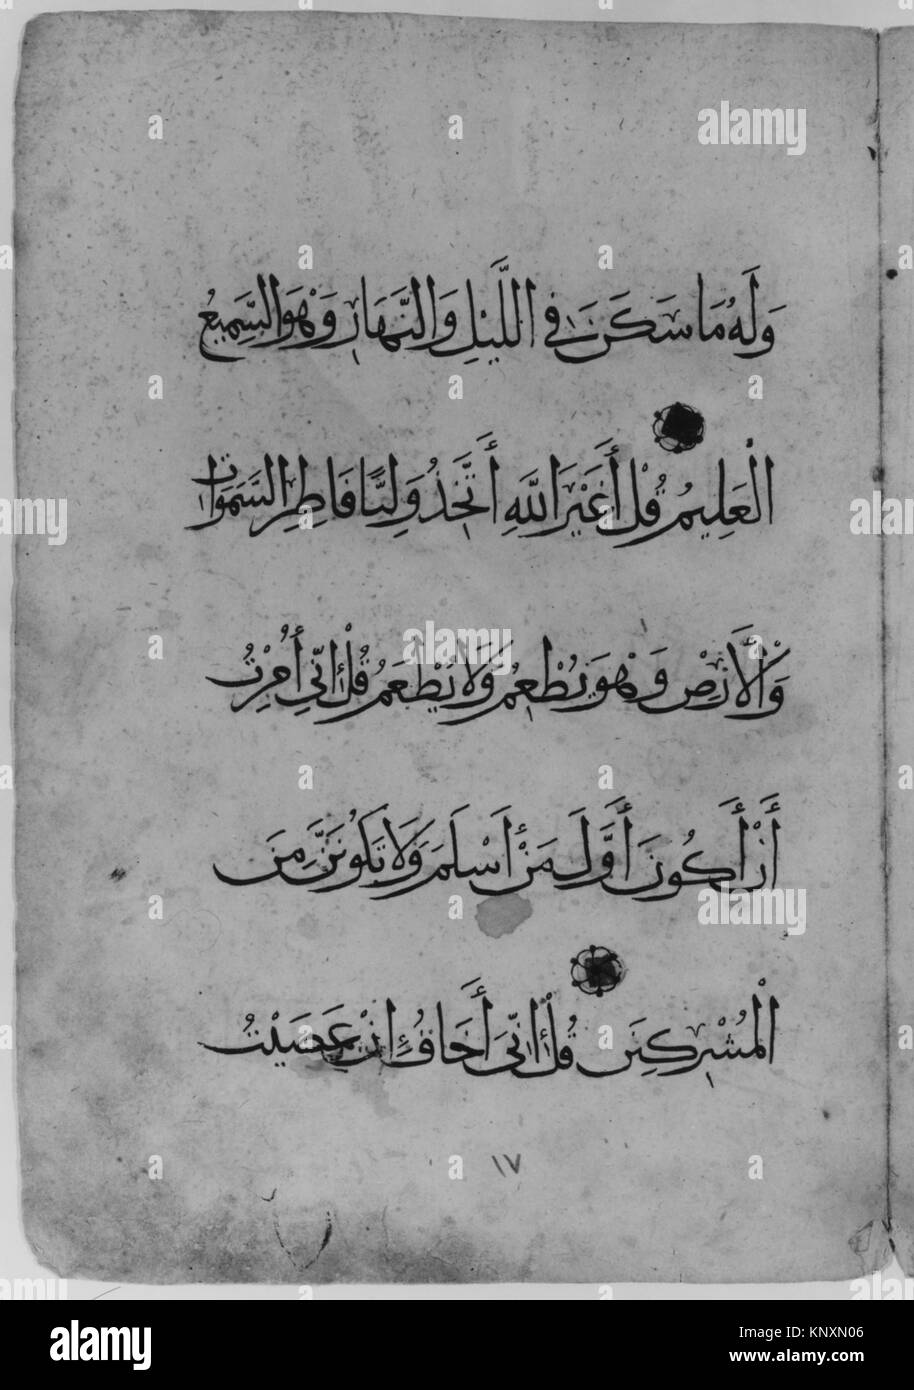 وَلَهُ مَا سَكَنَ فِي اللَّيْلِ وَالنَّهَارِ وَهْوَ السَّمِيعُ
الْعَلِيمُ قُلْ أَغَيْرَ اللَّهِ أَتَّخِذُ وَلِيًّا فَاطِرِ السَّمَوَاتِ
وَالْأَرْضِ وَهْوَ يُطْعِمُ وَلَا يُطْعَمُ قُلْ إِنِّي أُمِرْتُ
أَنْ أَكُونَ أَوَّلَ مَنْ أَسْلَمَ وَلَا تَكُونَنَّ مِنَ
الْمُشْرِكِينَ قُلْ إِنِّيَ أَخَافُ إِنْ عَصَيْتُ
١٧
alamy
alamy
alamy
alamy stock photo
KNXN06
www.alamy.com